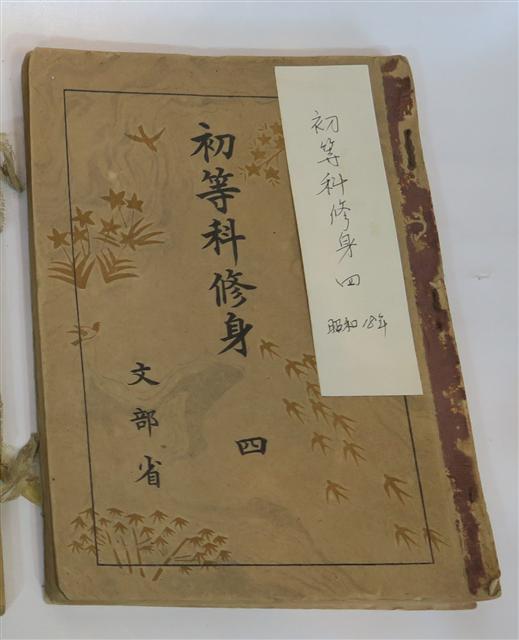 初等科修身
四
文部省
初等科修身 四
昭和18年